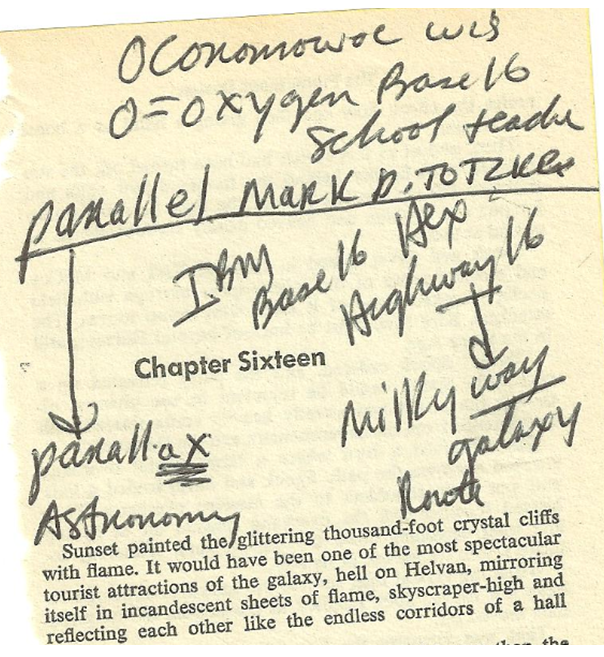 Oconomowoc Wis
O=Oxygen Base 16
School teacher
parallel MARK D. TOTZKE
IBM Base 16 Hex
Highway 16
Chapter Sixteen
Milky way
galaxy
parallax
Route
Astronomy
Sunset painted the glittering thousand-foot crystal cliffs
with flame. It would have been one of the most spectacular
tourist attractions of the galaxy, hell on Helvan, mirroring
itself in incandescent sheets of flame, skyscraper-high and
reflecting each other like the endless corridors of a hall
than the